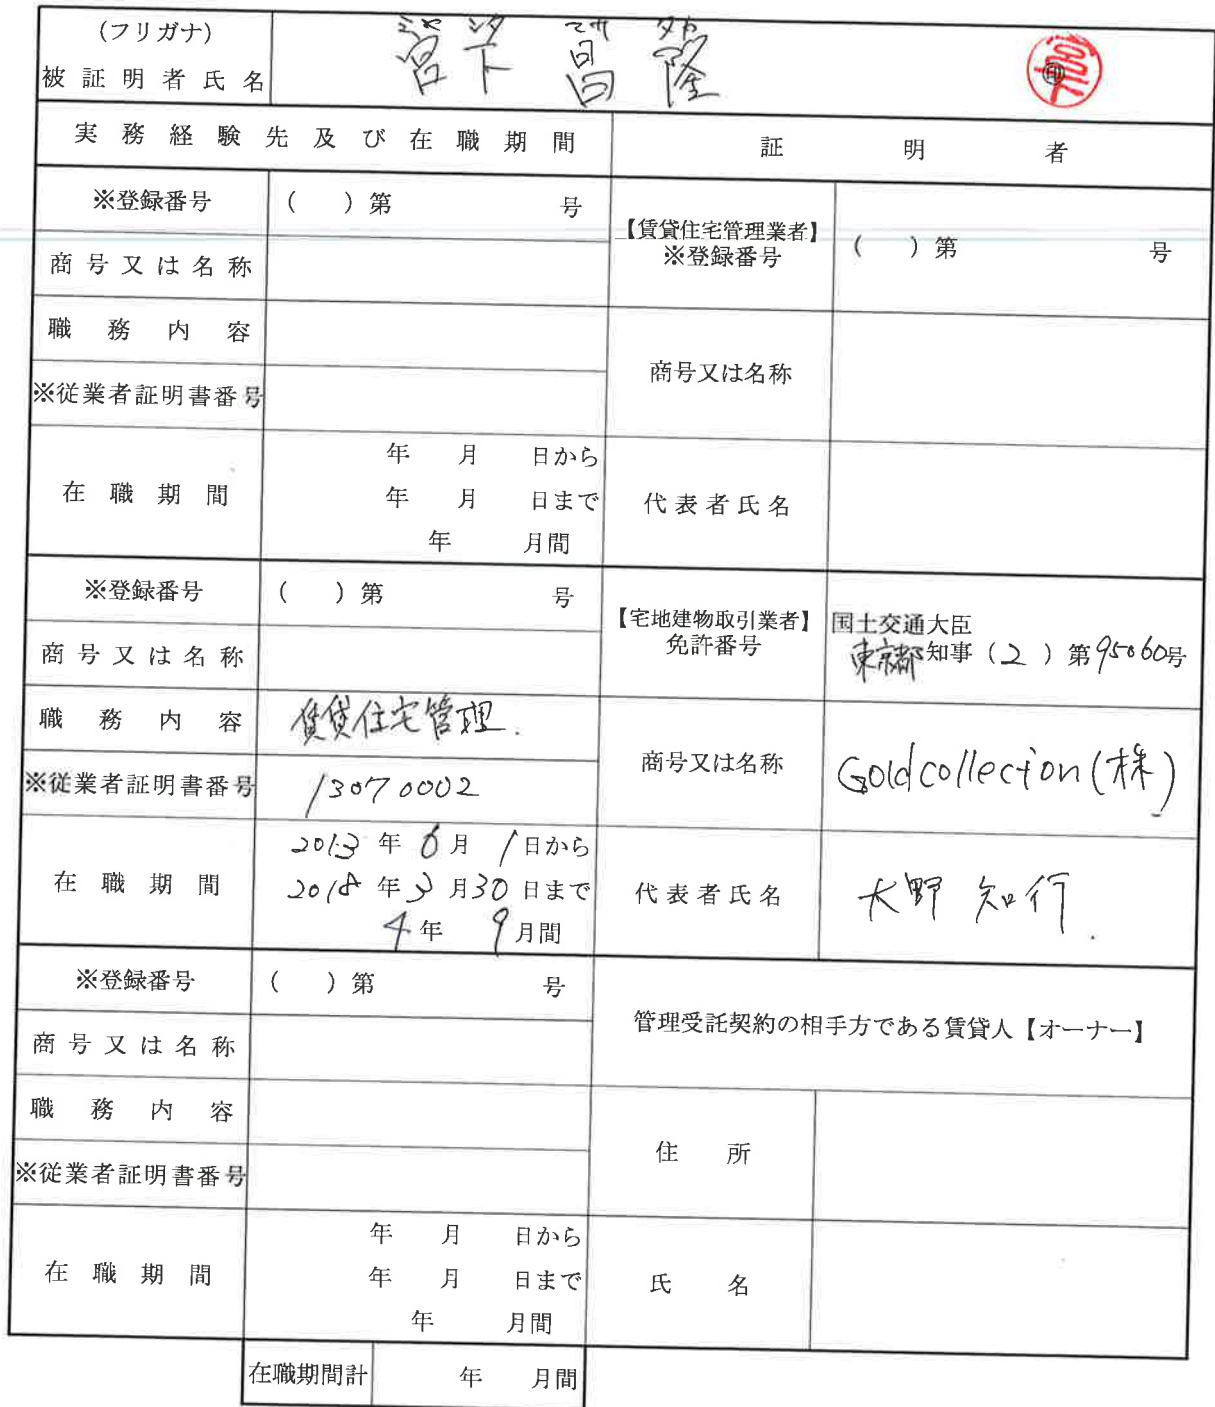 (フリガナ)
ミヤ シタ マサ タカ
被証明者氏名 宮下 昌隆 ㊞
実務経験先及び在職期間
証明者
※登録番号 ( ) 第 号
商号又は名称
職務内容
※従業者証明書番号
在職期間
年 月 日から
年 月 日まで
年 月間
【賃貸住宅管理業者】
※登録番号
( ) 第 号
商号又は名称
代表者氏名
※登録番号 ( ) 第 号
商号又は名称
職務内容 賃貸住宅管理.
※従業者証明書番号 13070002
在職期間
2013 年 6 月 1 日から
2018 年 3 月 30 日まで
4 年 9 月間
【宅地建物取引業者】
免許番号
国土交通大臣
東京都 知事 ( 2 ) 第 95060 号
商号又は名称 Goldcollection(株)
代表者氏名 大野 知行.
※登録番号 ( ) 第 号
商号又は名称
職務内容
※従業者証明書番号
在職期間
年 月 日から
年 月 日まで
年 月間
管理受託契約の相手方である賃貸人【オーナー】
住所
氏名
在職期間計 年 月間